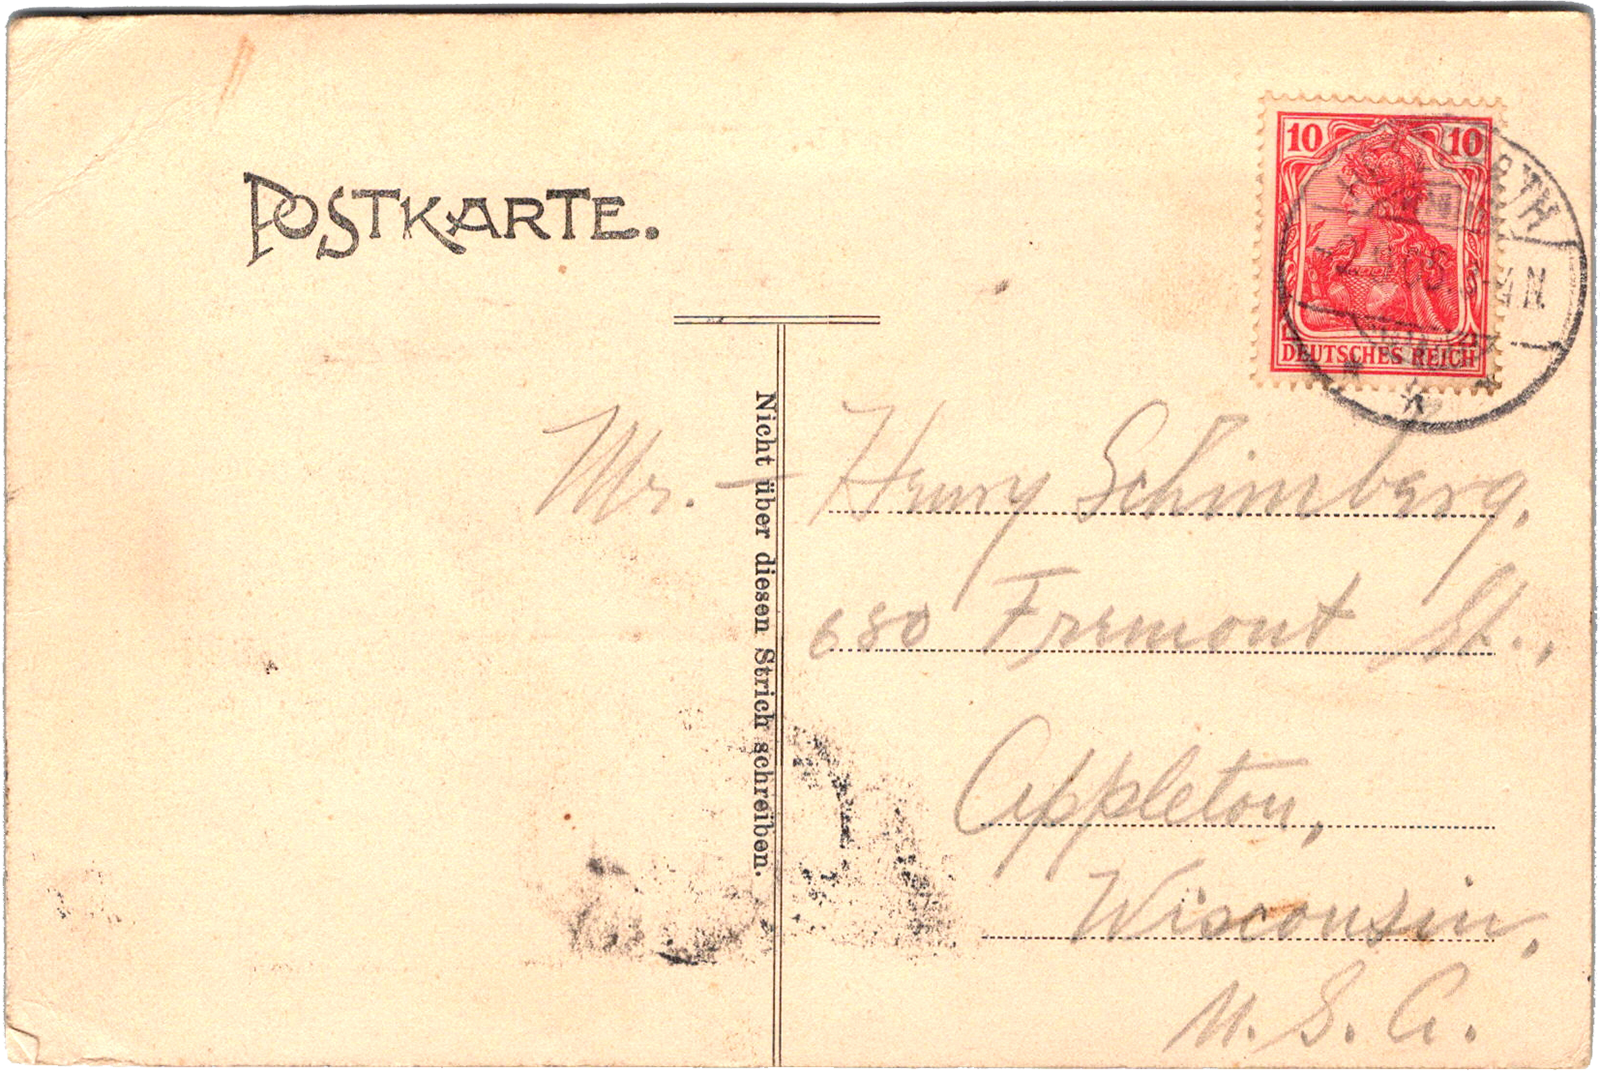 POSTKARTE.
10 10
DEUTSCHES REICH
Nicht über diesen Strich schreiben.
Mr. – Henry Schimberg,
680 Fremont St.,
Appleton,
Wisconsin,
U. S. A.